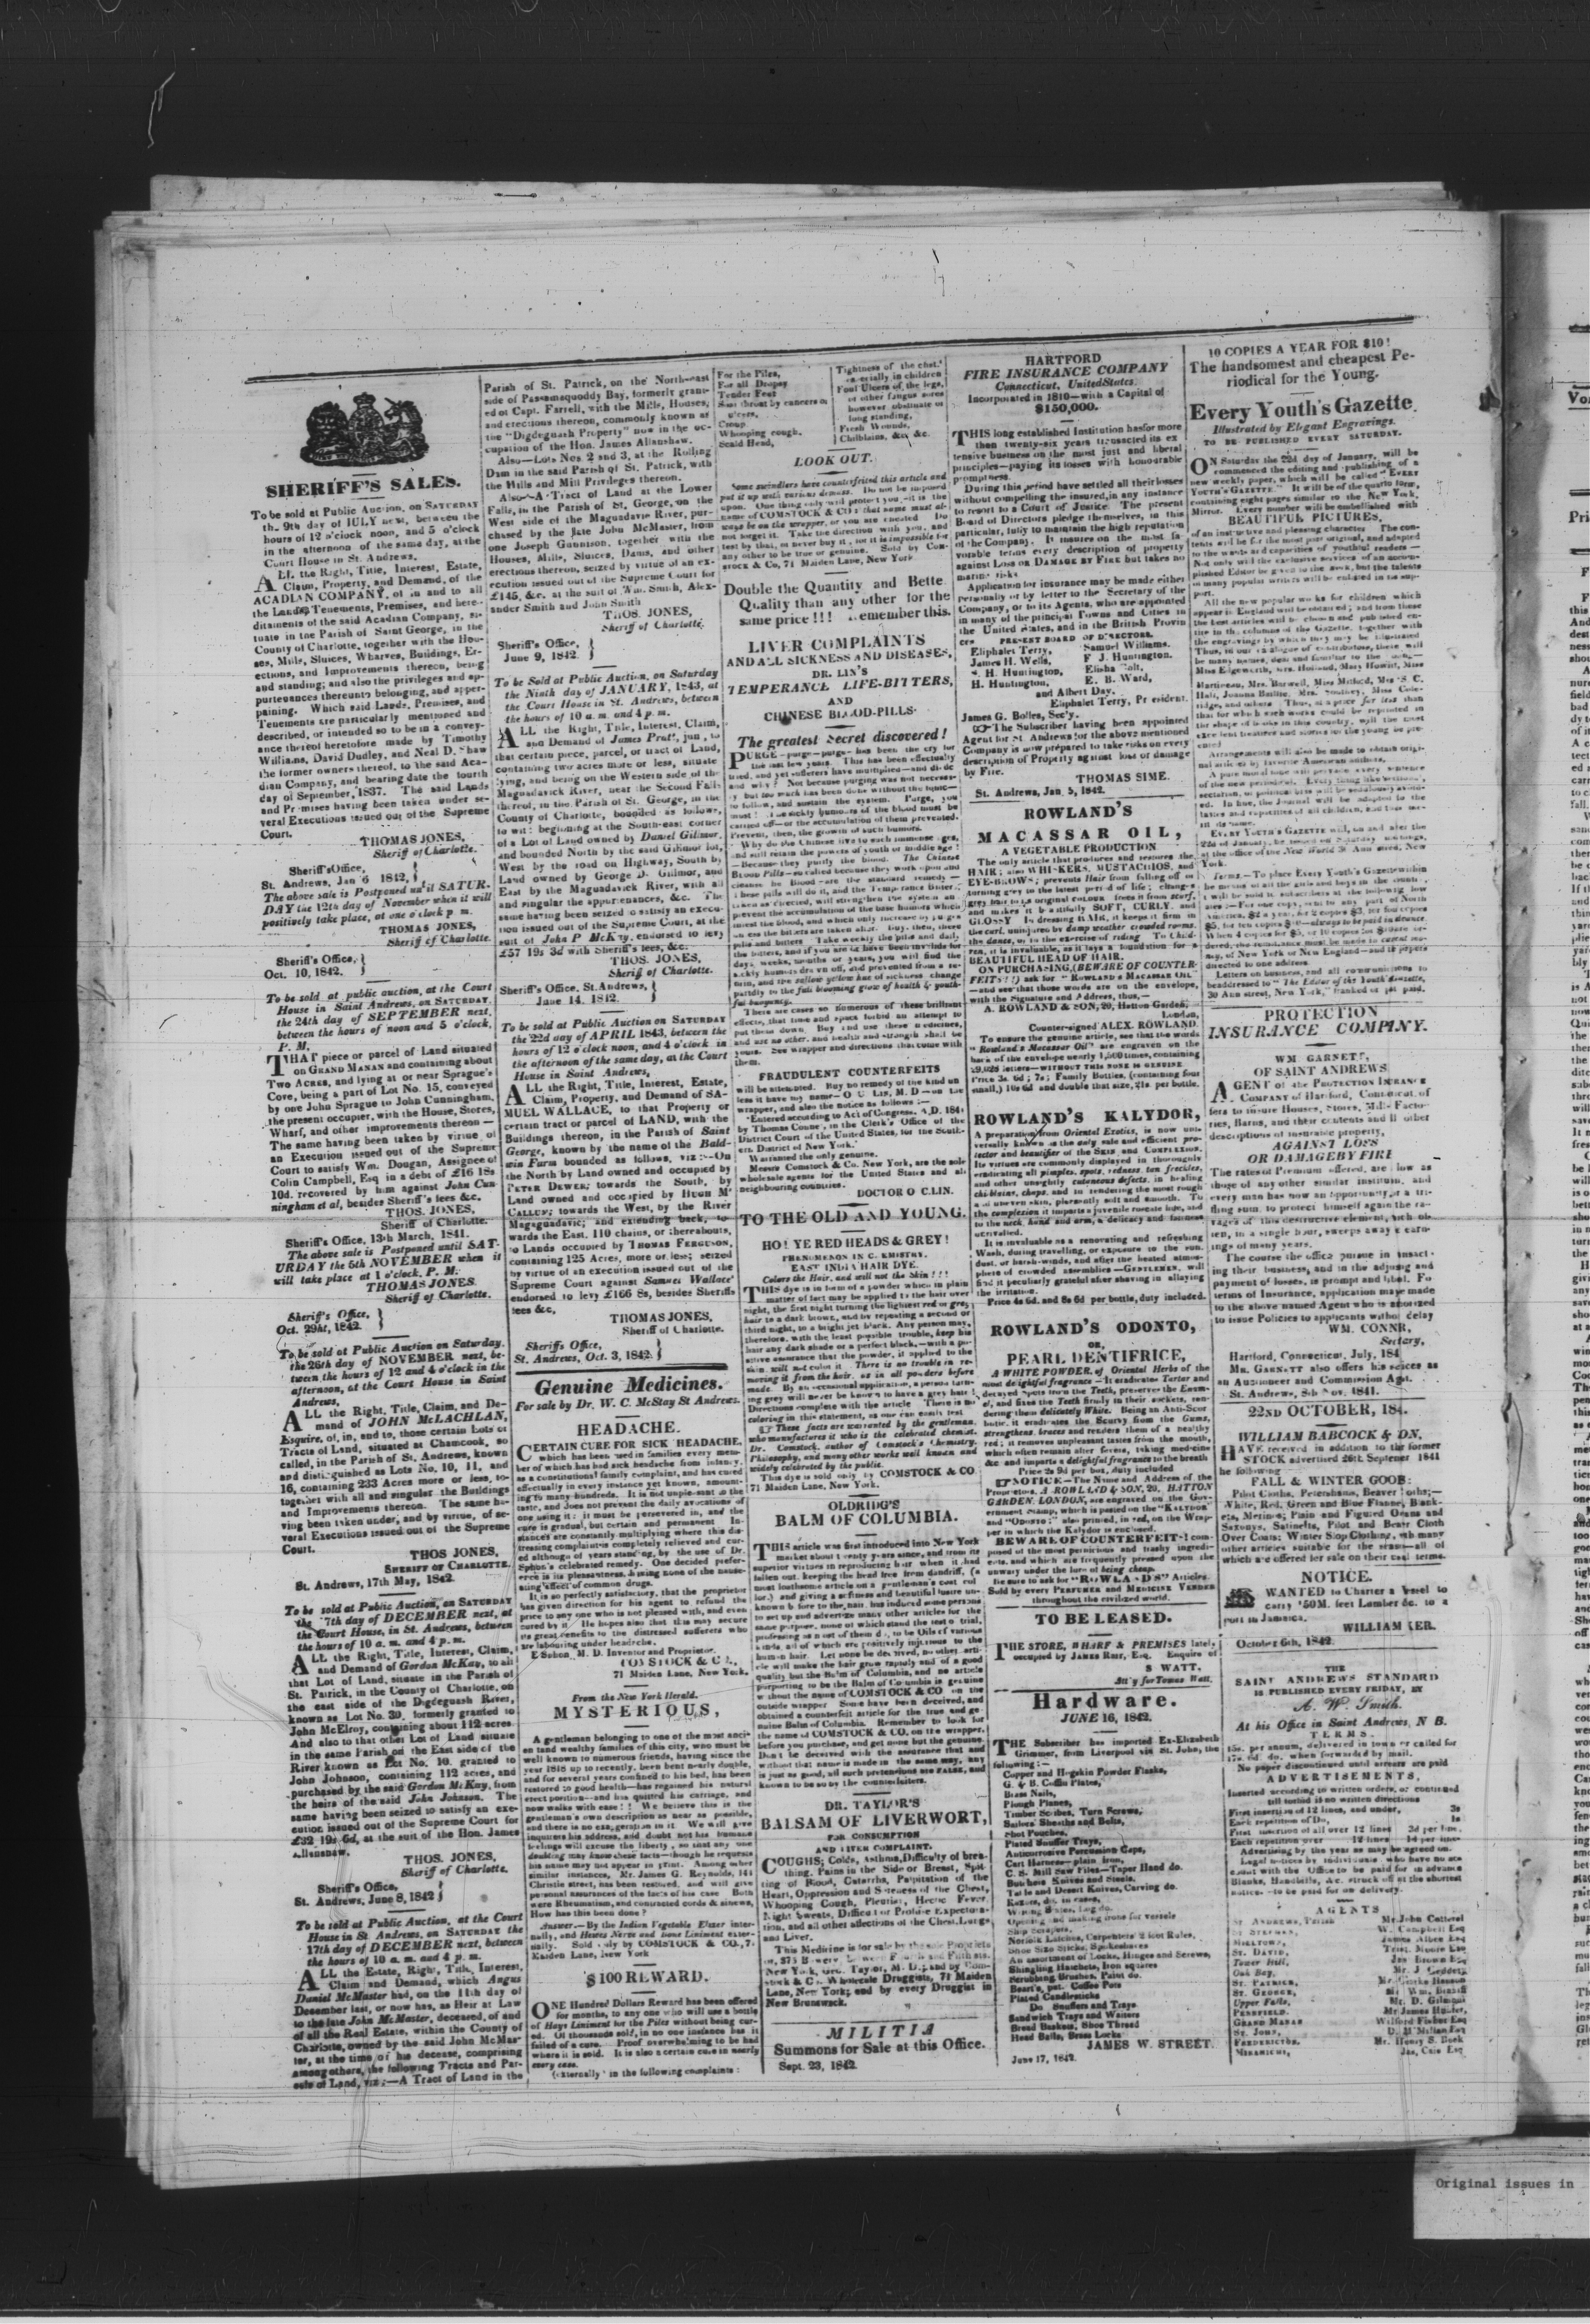 SHERIFF'S SALES.
To be sold at Public Auction, on SATURDAY
the 9th day of JULY next, between the
hours of 12 o'clock noon, and 5 o'clock
in the afternoon of the same day, at the
Court House in St. Andrews,
ALL the Right, Title, Interest, Estate,
Claim, Property, and Demand, of the
ACADIAN COMPANY, of in and to all
the Lands, Tenements, Premises, and here-
ditaments of the said Acadian Company, si-
tuate in the Parish of Saint George, in the
County of Charlotte, together with the Hou-
ses, Mills, Sluices, Wharves, Buildings, Er-
ections, and Improvements thereon, being
and standing; and also the privileges and ap-
purtenances thereunto belonging, and apper-
taining. Which said Lands, Premises, and
Tenements are particularly mentioned and
described, or intended so to be in a convey-
ance thereof heretofore made by Timothy
Williams, David Dudley, and Neal D. Shaw
the former owners thereof, to the said Aca-
dian Company, and bearing date the fourth
day of September, 1837. The said Lands
and Premises having been taken under se-
veral Executions issued out of the Supreme
Court.
THOMAS JONES,
Sheriff of Charlotte.
Sheriff's Office,
St. Andrews, Jan 6 1842,
The above sale is Postponed until SATUR-
DAY the 12th day of November when it will
positively take place, at one o'clock p m.
THOMAS JONES,
Sheriff of Charlotte.
Sheriff's Office,
Oct. 10, 1842.
To be sold at public auction, at the Court
House in Saint Andrews, on SATURDAY,
the 24th day of SEPTEMBER next,
between the hours of noon and 5 o'clock,
P. M.
THAT piece or parcel of Land situated
on GRAND MANAN and containing about
Two ACRES, and lying at or near Sprague's
Cove, being a part of Lot No. 15, conveyed
by one John Sprague to John Cunningham,
the present occupier, with the House, Stores,
Wharf, and other improvements thereon—
The same having been taken by virtue of
an Execution issued out of the Supreme
Court to satisfy Wm. Dougan, Assignee of
Colin Campbell, Esq in a debt of £16 18s
10d. recovered by him against John Cun-
ningham et al, besides Sheriff's fees &c.
THOS. JONES,
Sheriff of Charlotte.
Sheriff's Office, 13th March, 1841.
The above sale is Postponed until SAT-
URDAY the 5th NOVEMBER when it
will take place at 1 o'clock, P. M.
THOMAS JONES.
Sheriff of Charlotte.
Sheriff's Office,
Oct. 29ht, 1842.
To be sold at Public Auction on Saturday.
the 26th day of NOVEMBER next, be-
tween the hours of 12 and 4 o'clock in the
afternoon, at the Court House in Saint
Andrews,
ALL the Right, Title, Claim, and De-
mand of JOHN McLACHLAN,
Esquire, of, in, and to, those certain Lots or
Tracts of Land, situated at Chamcook, so
called, in the Parish of St. Andrews, known
and distinguished as Lots No. 10, 11, and
16, containing 233 Acres more or less, to-
together with all and singular the Buildings
and Improvements thereon. The same ha-
ving been taken under, and by virtue, of se-
veral Executions issued out of the Supreme
Court.
THOS JONES,
SHERIFF OF CHARLOTTE.
St. Andrews, 17th May, 1842.
To be sold at Public Auction, on SATURDAY
the 7th day of DECEMBER next, at
the Court House, in St. Andrews, between
the hours of 10 a. m. and 4 p. m.
ALL the Right, Title, Interest, Claim,
and Demand of Gordon McKay, to all
that Lot of Land, situate in the Parish of
St. Patrick, in the County of Charlotte, on
the east side of the Digdeguash River,
known as Lot No. 30, formerly granted to
John McElroy, containing about 112 acres
And also to that other Lot of Land situate
in the same Parish on the East side of the
River known as Lot No. 10. granted to
John Johnson, containing 112 acres, and
purchased by the said Gordon McKay, from
the heirs of the said John Johnson. The
same having been seized to satisfy an exe-
cution issued out of the Supreme Court for
£32 19s 6d, at the suit of the Hon. James
Allanshaw.
THOS. JONES,
Sheriff of Charlotte.
Sheriff's Office,
St. Andrews, June 8, 1842
To be sold at Public Auction, at the Court
House in St. Andrews, on SATURDAY the
17th day of DECEMBER next, between
the hours of 10 a. m. and 4 p. m.
ALL the Estate, Right, Title, Interest,
Claim and Demand, which Angus
Daniel McMaster had, on the 11th day of
December last, or now has, as Heir at Law
to the late John McMaster, deceased, of and
of all the Real Estate, within the County of
Charlotte, owned by the said John McMas-
ter, at the time of his decease, comprising
among others, the following Tracts and Par-
cels of Land, viz:—A Tract of Land in the
Parish of St. Patrick, on the North-east
side of Passamaquoddy Bay, formerly grant-
ed to Capt. Farrell, with the Mills, Houses,
and erections thereon, commonly known as
the "Digdeguash Property" now in the oc-
cupation of the Hon. James Allanshaw.
Also—Lots Nos 2 and 3, at the Rolling
Dam in the said Parish of St. Patrick, with
the Hills and Mill Privileges thereon.
Also—A Tract of Land at the Lower
Falls, in the Parish of St. George, on the
West side of the Magundavie River, pur-
chased by the late John McMaster, from
one Joseph Gunnison, together with the
Houses, Mills, Sluices, Dams, and other
erections thereon, seized by virtue of an ex-
ecution issued out of the Supreme Court for
£145, &c. at the suit of Wm. Smith, Alex-
ander Smith and John Smith
THOS. JONES,
Sheriff of Charlotte.
Sheriff's Office,
June 9, 1842.
To be Sold at Public Auction, on Saturday
the Ninth day of JANUARY, 1843, at
the Court House in St. Andrews, between
the hours of 10 a. m. and 4 p. m.
ALL the Right, Title, Interest, Claim,
and Demand of James Pratt, jun., to
that certain piece, parcel, or tract of Land,
containing two acres more or less, situate
lying, and being on the Western side of the
Magundavick River, near the Second Falls
thereof, in the Parish of St. George, in the
County of Charlotte, bounded as follows,
to wit: beginning at the South-east corner
of a Lot of Land owned by Daniel Gilmor,
and bounded North by the said Gilmor lot,
West by the road on Highway, South by
Land owned by George D. Gillmor, and
East by the Maguadavick River, with all
and singular the appurtenances, &c. The
same having been seized to satisfy an execu-
tion issued out of the Supreme Court, at the
suit of John P McKay, endorsed to levy
£57 19s 3d with Sheriff's fees, &c.
THOS. JONES,
Sheriff of Charlotte.
Sheriff's Office, St. Andrews,
June 14. 1842.
To be sold at Public Auction on SATURDAY
the 22d day of APRIL 1843, between the
hours of 12 o'clock noon, and 4 o'clock in
the afternoon of the same day, at the Court
House in Saint Andrews,
ALL the Right, Title, Interest, Estate,
Claim, Property, and Demand of SA-
MUEL WALLACE, to that Property or
certain tract or parcel of LAND, with the
Buildings thereon, in the Parish of Saint
George, known by the name of the Bald-
win Farm bounded as follows, viz:—On
the North by Land owned and occupied by
PETER DEWER; towards the South, by
Land owned and occupied by HUGH Mc
CALLUM; towards the West, by the River
Magaguadavic; and extending back, to-
wards the East, 110 chains, or thereabouts,
to Lands occupied by THOMAS FERGUSON,
containing 125 Acres, more or less; seized
by virtue of an execution issued out of the
Supreme Court against Samuel Wallace
endorsed to levy £166 8s, besides Sheriffs
fees &c,
THOMAS JONES,
Sheriff of Charlotte.
Sheriffs Office,
St. Andrews, Oct. 3, 1842.
Genuine Medicines.
For sale by Dr. W. C. McStay St Andrews.
HEADACHE.
CERTAIN CURE FOR SICK HEADACHE,
which has been used in families every mem-
ber of which has had sick headache from infancy,
as a constitutional family complaint, and has cured
effectually in every instance yet known, amount-
ing to many hundreds. It is not unpleasant to the
taste, and does not prevent the daily avocations of
one using it: it must be persevered in, and the
cure is gradual, but certain and permanent In-
stances are constantly multiplying where this dis-
tressing complaint is completely relieved and cur-
ed although of years standing, by the use of Dr.
Sphon's celebrated remedy. One decided prefer-
ence is its pleasantness, having none of the nause-
ating effect of common drugs.
It is so perfectly satisfactory, that the proprietor
has given direction for his agent to refund the
price to any one who is not pleased with, and even
cured by it. He hopes also that this may secure
its great benefits to the distressed sufferers who
are labouring under headache.
E Sphon, M. D. Inventor and Proprietor.
COMSTOCK & Co.,
71 Maiden Lane, New York.
From the New York Herald.
MYSTERIOUS,
A gentleman belonging to one of the most anci-
en tand wealthy families of this city, who must be
well known to numerous friends, having since the
year 1818 up to recently, been bent nearly double,
and for several years confined to his bed, has been
restored to good health—has regained his natural
erect position—and has quitted his carriage, and
now walks with ease!! We believe this is the
gentleman's own description as near as possible,
and there is no exaggeration in it. We will give
inquirers his address, and doubt not his humane
feelings will excuse the liberty, so that any one
doubting may know these facts—though he requests
his name may not appear in print. Among other
similar instances, Mr. James G. Reynolds, 141
Christie street, has been restored, and will give
personal assurances of the facts of his case Both
were Rheumatism, and contracted cords & sinews,
How has this been done?
Answer.—By the Indian Vegetable Elixer inter-
nally, and Hewes Nerve and Bone Liniment exter-
nally. Sold only by COMSTOCK & CO., 7.
Maiden Lane, New York
$100 REWARD.
ONE Hundred Dollars Reward has been offered
for months, to any one who will use a bottle
of Hays Liniment for the Piles without being cur-
ed. Of thousands sold, in no one instance has it
failed of a cure. Proof overwhelming to be had
where it is sold. It is also a certain cure in nearly
every case.
(externally in the following complaints:
For the Piles,
For all Dropsy
Tender Feet
Sore throat by cancers or
ulcers,
Croup
Whooping cough.
Scald Head,
Tightness of the chest,
especially in children
Foul Ulcers of the legs,
or other fungus sores
however obstinate or
long standing,
Fresh Wounds,
Chilblains, &c. &c.
LOOK OUT.
Some swindlers have counterfeited this article and
put it up with various devices. Do not be imposed
upon. One thing only will protect you,—it is the
name of COMSTOCK & CO: that name must al-
ways be on the wrapper, or you are cheated Do
not forget it. Take the direction with you, and
test by that, or never buy it, for it is impossible for
any other to be true or genuine. Sold by Com-
stock & Co, 71 Maiden Lane, New York
Double the Quantity and Bette.
Quality than any other for the
same price!!! Remember this.
LIVER COMPLAINTS
AND ALL SICKNESS AND DISEASES,
DR. LIN'S
TEMPERANCE LIFE-BITTERS,
AND
CHINESE BLOOD-PILLS.
The greatest Secret discovered!
PURGE—purge—purge—has been the cry for
the last few years. This has been effectually
tried, and yet sufferers have multiplied—and died
and why? Not because purging was not necessa-
ry but too much has been done without the tonic—
to follow, and sustain the system. Purge, you
must! The sickly humours of the blood must be
carried off—or the accumulation of them prevented.
Prevent, then, the growth of such humors.
Why do the Chinese live to such immense ages,
and still retain the powers of youth or middle age?
—Because they purify the blood. The Chinese
Blood Pills—so called because they work upon and
cleanse the Blood—are the standard remedy—
These pills will do it, and the Temperance Bitters,
taken as directed, will strengthen the system and
prevent the accumulation of the base humors which
infest the blood, and which only increase by purges
unless the bitters are taken after. Buy, then, these
pills and bitters Take weekly the pills and daily
the bitters, and if you are or have been invalids for
days, weeks, months or years, you will find the
sickly humors drawn off, and prevented from a re-
turn, and the sallow yellow hue of sickness change
partially to the full blooming glow of health & youth-
ful buoyancy.
There are cases so numerous of these brilliant
effects, that time and space forbid an attempt to
put them down. Buy and use these medicines,
and use no other, and health and strength shall be
yours. See wrapper and directions that come with
them.
FRAUDULENT COUNTERFEITS
will be attempted. Buy no remedy of the kind un
less it have my name—O C LIN, M. D—on the
wrapper, and also the notice as follows:—
"Entered according to Act of Congress, A.D. 1841
by Thomas Connel, in the Clerk's Office of the
District Court of the United States, for the South-
ern District of New York."
Warranted the only genuine.
Messrs Comstock & Co. New York, are the sole
wholesale agents for the United States and all
neighbouring countries.
DOCTOR O C.LIN.
TO THE OLD AND YOUNG.
HO! YE RED HEADS & GREY!
PHENOMENON IN C. EMISTRY.
EAST INDIA HAIR DYE.
Colors the Hair, and will not the Skin!!!
THIS dye is in form of a powder which in plain
matter of fact may be applied to the hair over
night, the first night turning the lightest red or grey
hair to a dark brown, and by repeating a second or
third night, to a bright jet black. Any person may,
therefore, with the least possible trouble, keep his
hair any dark shade or a perfect black,—with a po-
sitive assurance that the powder, it applied to the
skin will not color it. There is no trouble in re-
moving it from the hair, as in all powders before
made. By an occasional application, a person turn-
ing grey will never be known to have a grey hair!
Directions complete with the article There is no
coloring in this statement, as one can easily test
These facts are warranted by the gentleman,
who manufactures it who is the celebrated chemist,
Dr. Comstock, author of Comstock's Chemistry,
Philosophy, and many other works well known and
widely celebrated by the public.
This dye is sold only by COMSTOCK & CO.
71 Maiden Lane, New York.
OLDRIDG'S
BALM OF COLUMBIA.
THIS article was first introduced into New York
market about twenty years since, and from its
superior virtues in reproducing hair when it had
fallen out, keeping the head free from dandriff, (a
most loathsome article on a gentleman's coat col
lor.) and giving a softness and beautiful lustre un-
known before to the hair, has induced some persons
to set up and advertize many other articles for the
same purpose, none of which stand the test of trial,
professing as most of them do, to be Oils of various
kinds, all of which are positively injurious to the
human hair. Let none be deceived, no other arti-
cle will make the hair grow rapidly and of a good
quality but the Balm of Columbia, and no article
purporting to be the Balm of Columbia is genuine
without the name of COMSTOCK & CO on the
outside wrapper Some have been deceived, and
obtained a counterfeit article for the true and ge-
nuine Balm of Columbia. Remember to look for
the name of COMSTOCK & CO. on the wrapper,
before you purchase, and get none but the genuine.
Don't be deceived with the assurance that and
without that name is made in the same way, any
is just as good, all such pretensions are FALSE, and
known to be so by the counterfeiters.
DR. TAYLOR'S
BALSAM OF LIVERWORT,
FOR CONSUMPTION
AND LIVER COMPLAINT.
COUGHS; Colds, Asthma, Difficulty of brea-
thing, Pains in the Side or Breast, Spit-
ting of Blood, Catarrhs, Palpitation of the
Heart, Oppression and Soreness of the Chest,
Whooping Cough, Pleurisy, Hectic Fever.
Night Sweats, Difficult or Profuse Expectora-
tion, and all other affections of the Chest, Lungs
and Liver.
This Medicine is for sale by the sole Proprietor
or, 375 Bowery,
New York, Geo. Taylor, M. D.; and by Com-
stock & Co. Wholesale Druggists, 71 Maiden
Lane, New York; and by every Druggist in
New Brunswick.
MILITIA
Summons for Sale at this Office.
Sept. 23, 1842.
HARTFORD
FIRE INSURANCE COMPANY
Connecticut, United States.
Incorporated in 1810—with a Capital of
$150,000.
THIS long established Institution has for more
than twenty-six years transacted its ex
tensive business on the most just and liberal
principles—paying its losses with honourable
promptness.
During this period have settled all their losses
without compelling the insured, in any instance
to resort to a Court of Justice. The present
Board of Directors pledge themselves, in this
particular, fully to maintain the high reputation
of the Company. It insures on the most fa-
vorable terms every description of property
against LOSS OR DAMAGE BY FIRE but takes no
marine risks
Application for insurance may be made either
Personally or by letter to the Secretary of the
Company, or to its Agents, who are appointed
in many of the principal Towns and Cities in
the United States, and in the British Provin
ces
PRESENT BOARD OF DIRECTORS.
Eliphalet Terry, Samuel Williams.
James H. Wells, F J. Huntington.
S. H. Huntington, Elisha Colt,
H. Huntington, E. B. Ward,
and Albert Day.
Eliphalet Terry, President.
James G. Bolles, Sec'y.
The Subscriber having been appointed
Agent for St. Andrews for the above mentioned
Company is now prepared to take risks on every
description of Property against loss or damage
by Fire.
THOMAS SIME.
St. Andrews, Jan. 5, 1842.
ROWLAND'S
MACASSAR OIL,
A VEGETABLE PRODUCTION
The only article that produces and restores the
HAIR; also WHISKERS, MUSTACHIOS, and
EYE-BROWS; prevents Hair from falling off or
turning grey to the latest period of life; changes
grey hair to its original colour frees it from scurf,
and makes it beautifully SOFT, CURLY, and
GLOSSY In dressing HAIR, it keeps it firm in
the curl, uninjured by damp weather crowded rooms,
the dance, or in the exercise of riding To Child-
ren, it is invaluable, as it lays a foundation for a
BEAUTIFUL HEAD OF HAIR.
ON PURCHASING, (BEWARE OF COUNTER-
FEITS!!) ask for "ROWLAND'S MACASSAR OIL"
—and see that those words are on the envelope,
with the Signature and Address, thus,—
A. ROWLAND & SON, 20, Hatton Garden,
London,
Counter-signed ALEX. ROWLAND.
To ensure the genuine article, see that the words
"Rowland's Macassar Oil" are engraven on the
back of the envelope nearly 1,500 times, containing
29,028 letters—WITHOUT THIS NONE IS GENUINE
Price 3s. 6d; 7s; Family Bottles, (containing four
small,) 10s 6d and double that size, 21s. per bottle.
ROWLAND'S KALYDOR,
A preparation from Oriental Exotics, is now uni-
versally known as the only safe and efficient pro-
tector and beautifier of the SKIN and COMPLEXION.
Its virtues are commonly displayed in thoroughly
eradicating all pimples, spots, redness, tan, freckles,
and other unsightly cutaneous defects, in healing
chilblains, chaps, and in rendering the most rough
and uneven skin, pleasantly soft and smooth. To
the complexion it imparts a juvenile roseate hue, and
to the neck, hand and arm, a delicacy and fairness
unrivalled.
It is invaluable as a renovating and refreshing
Wash, during travelling, or exposure to the sun,
dust, or harsh-winds, and after the heated atmos-
phere of crowded assemblies—GENTLEMEN, will
find it peculiarly grateful after shaving in allaying
the irritation.
Price 4s 6d. and 8s 6d per bottle, duty included.
ROWLAND'S ODONTO,
OR,
PEARL DENTIFRICE,
A WHITE POWDER, of Oriental Herbs of the
most delightful fragrance—It eradicates Tartar and
decayed Spots from the Teeth, preserves the Enam-
el, and fixes the Teeth firmly in their sockets, ren-
dering them delicately White. Being an Anti-Scor
butic, it eradicates the Scurvy from the Gums,
strengthens, braces and renders them of a healthy
red; it removes unpleasant tastes from the mouth,
which often remain after fevers, taking medicine
&c and imparts a delightful fragrance to the breath
Price 2s 9d per box, duty included
NOTICE—The Name and Address of the
Proprietors, A ROWLAND & SON, 20, HATTON
GARDEN, LONDON, are engraved on the Gov-
ernment Stamp, which is pasted on the "KALYDOR"
and "ODONTO;" also printed, in red, on the Wrap-
per in which the Kalydor is enclosed.
BEWARE OF COUNTERFEITS! com-
posed of the most pernicious and trashy ingredi-
ents, and which are frequently pressed upon the
unwary under the lure of being cheap.
Be sure to ask for "ROWLAND'S" Articles.
Sold by every PERFUMER and MEDICINE VENDER
throughout the civilized world.
TO BE LEASED.
THE STORE, WHARF & PREMISES lately
occupied by JAMES RAIT, Esq. Enquire of
S WATT,
Att'y for Tomas Watt.
Hardware.
JUNE 16, 1842.
THE Subscriber has imported Ex-Elizabeth
Grimmer, from Liverpool via St. John, the
following:—
Copper and Hogskin Powder Flasks,
G. & B. Coffin Plates,
Brass Nails,
Plough Planes,
Timber Scribes, Turn Screws,
Sailors' Sheaths and Belts,
Shot Pouches,
Plated Snuffer Trays,
Anticorrosive Percussion Caps,
Cart Harness—plain Iron,
C. S. Mill Saw Files—Taper Hand do.
Butchers Knives and Steels,
Table and Desert Knives, Carving do.
Razors, do. in cases,
Wiring Boxes, Log do.
Opening and making irons for vessels
Ship Scrapers,
Norfolk Latches, Carpenters' 2 foot Rules,
Shoe Size Sticks, Spokeshaves
An assortment of Locks, Hinges and Screws,
Shingling Hatchets, Iron squares
Scrubbing Brushes, Paint do.
Beart's, pat. Coffee Pots
Plated Candlesticks
Do Snuffers and Trays
Sandwich Trays and Waiters
Bread Baskets, Shoe Thread
Head Balls, Brass Locks
JAMES W. STREET.
June 17, 1842.
10 COPIES A YEAR FOR $10!
The handsomest and cheapest Pe-
riodical for the Young.
Every Youth's Gazette
Illustrated by Elegant Engravings.
TO BE PUBLISHED EVERY SATURDAY.
ON Saturday the 22d day of January, will be
commenced the editing and publishing of a
new weekly paper, which will be called "EVERY
YOUTH'S GAZETTE." It will be of the quarto form,
containing eight pages similar to the New York,
Mirror. Every number will be embellished with
BEAUTIFUL PICTURES,
of an instructive and pleasing character The con-
tents will be for the most part original, and adapted
to the wants and capacities of youthful readers—
Not only will the exclusive services of an accom-
plished Editor be given to the work, but the talents
of many popular writers will be enlisted in its sup-
port.
All the new popular works for children which
appear in England will be obtained; and from these
the best articles will be chosen and published en-
tire in the columns of the Gazette, together with
the engravings by which they may be illustrated
Thus, in our catalogue of contributors, there will
be many names, dear and familiar to the young—
Miss Edgeworth, Mrs. Hofland, Mary Howitt, Miss
Martineau, Mrs. Barwell, Miss Mitford, Mrs S. C.
Hall, Joanna Baillie, Mrs. Southey, Miss Cole-
ridge, and others Thus, at a price far less than
that for which such works could be reprinted in
the shape of books in this country, will the most
excellent treatises and stories for the young be pre-
sented
Arrangements will also be made to obtain origi-
nal articles by favorite American authors.
A pure moral tone will pervade every sentence
of the new periodical. Every thing like
sectarian, or political bias will be sedulously avoid-
ed. In fine, the Journal will be adapted to the
tastes and capacities of all children,
EVERY YOUTH'S GAZETTE will, on and after the
22d of January, be issued on Saturday mornings,
at the office of the New World 30 Ann street, New
York.
Terms.—To place Every Youth's Gazette within
the means of all the girls and boys in the country,
it will be sold to subscribers at the following low
rates—For one copy, sent to any part of North
America, $2 a year, for 2 copies $3, for four copies
$5, for ten copies $10—always to be paid in advance.
When 4 copies for $5, or 10 copies for $10 are or-
dered, the remittance must be made in current mo-
ney, of New York or New England—and the papers
directed to one address.
Letters on business, and all communications to
be addressed to "The Editor of the Youth's Gazette,
30 Ann street, New York," franked or pst paid.
PROTECTION
INSURANCE COMPANY.
WM GARNETT,
OF SAINT ANDREWS
AGENT of the PROTECTION INSURANCE
COMPANY of Hartford, Connecticut, of
fers to insure Houses, Stores, Mills Facto-
ries, Barns, and their contents and all other
descriptions of insurable property,
AGAINST LOSS
OR DAMAGE BY FIRE
The rates of Premium offered, are low as
those of any other similar institution, and
every man has now an opportunity for a tri-
fling sum, to protect himself again the ra-
vages of this destructive element, which of-
ten, in a single hour, sweeps away e earn-
ings of many years.
The course the office pursue in transact-
ing their business, and in the adjusting and
payment of losses, is prompt and liberal. Fo
terms of Insurance, application may be made
to the above named Agent who is authorized
to issue Policies to applicants without delay
WM. CONNR,
Secretary,
Hartford, Connecticut, July, 184
MR. GARNETT also offers his services as
an Auctioneer and Commission Agnt.
St. Andrews, 8th Nov. 1841.
22ND OCTOBER, 184.
WILLIAM BABCOCK & ON,
HAVE received in addition to their former
STOCK advertised 26th September 1841
he following
FALL & WINTER GOOB:
Pilot Cloths, Petershams, Beaver Cloths;—
White, Red, Green and Blue Flannel, Blank-
ets, Merinos; Plain and Figured Oleans and
Saxonys, Satinetts, Pilot and Beaver Cloth
Over Coats; Winter Slop Clothing, with many
other articles suitable for the season—all of
which are offered for sale on their usual terms.
NOTICE.
WANTED to Charter a Vessel to
carry 150M. feet Lumber &c. to a
port in Jamaica.
WILLIAM KER.
October 6th, 1842.
THE
SAINT ANDREWS STANDARD
IS PUBLISHED EVERY FRIDAY, BY
A. W. Smith.
At his Office in Saint Andrews, N B.
TERMS
15s. per annum, delivered in town or called for
17s. 6d. do. when forwarded by mail.
No paper discontinued until arrears are paid
ADVERTISEMENTS,
Inserted according to written orders, or continued
till forbid if no written directions
First insertion of 12 lines, and under, 3s
Each repetition of Do, 1s
First insertion of all over 12 lines 3d per line,
Each repetition over 12 lines 1d per line
Advertising by the year as may be agreed on.
Legal notices by individuals who have no acc
count with the Office to be paid for in advance
Blanks, Handbills, &c. struck off at the shortest
notice—to be paid for on delivery.
AGENTS
ST ANDREWS, Parish Mr John Cotterel
ST STEPHEN, W. Campbell Esq
MILLTOWN, James Albee Esq
ST. DAVID, Trist. Moore Esq
Tower Hill, Jas Brown Esq
Oak Bay, Mr. J Geddes
ST. PATRICK, Mr.
ST. GEORGE, Mr Wm.
Upper Falls, Mr. D. Gilmour
PENNFIELD, Mr James Hunter,
GRAND MANAN Wilford Fisher Esq
ST. JOHN, D. M'Millan Esq
FREDERICTON, Mr. Henry S. Beek
MIRAMICHI, Jas, Caie Esq
Original issues in